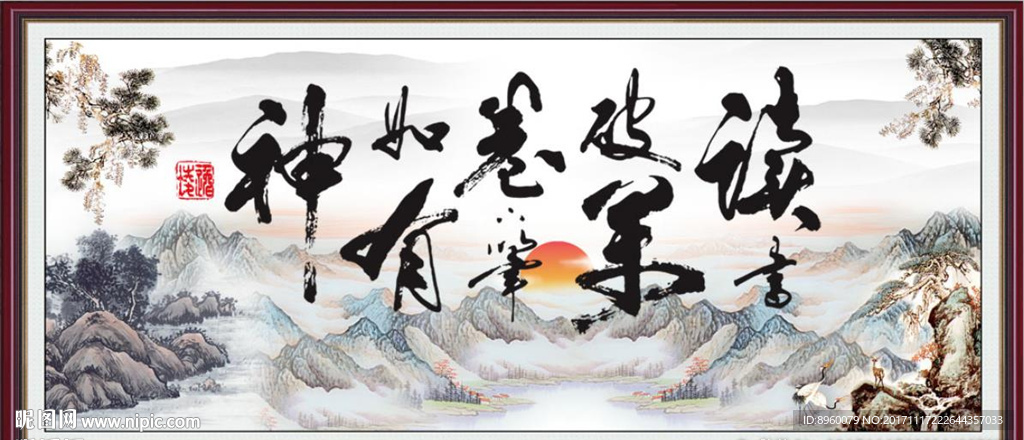 读書
破萬
卷下筆
如有
神
昵图网 www.nipic.com
ID:8960079 NO:20171117222644357033